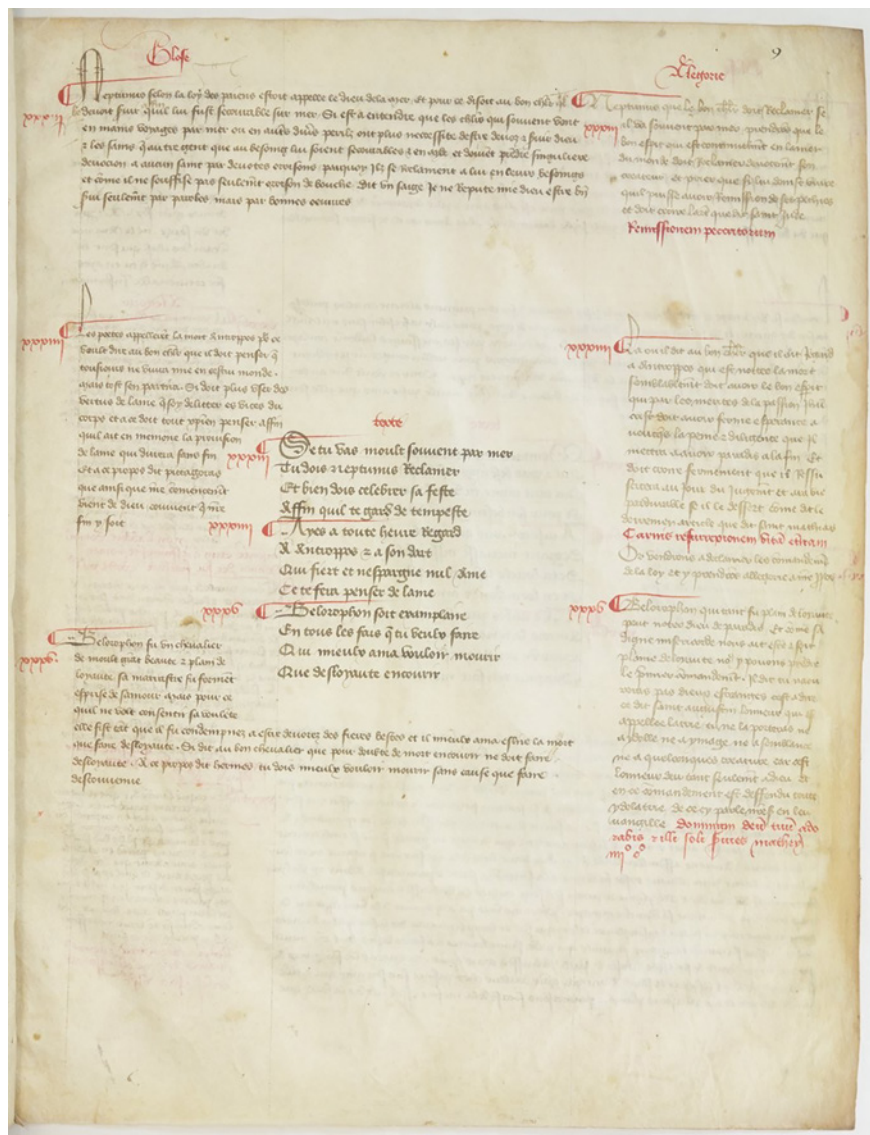 9
Glose
Neptunus selon la loy des paiens estoit appelle le dieu de la mer. Et pour ce disoit au bon chlr ql
xxxiii
le devoit servir qu'il lui fust secourable sur mer. Si est a entendre que les chlrs qui souvent vont
en mains voyages par mer ou en autres divers perilz ont plus necessite destre devoz & servir dieu
& les sains q autre gent que au besoing lui soient secourables & en aide et doivent pndre singuliere
devocion a aucun saint par devotes oroisons parquoy ilz se reclament a lui en leurs besoings
et come il ne souffise pas seulemt oroison de bouche dit un saige Je ne repute mie dieu estre bn
servi seulemt par paroles mais par bonnes oeuvres
Les poetes appellent la mort Antroppos po ce
xxxiiii
voult dire au bon chlr que il doit penser q
tousiours ne vivra mie en cestui monde.
mais tost sen partira. Si doit plus user des
vertus de lame q soy delitter es vices du
corps et a ce doit tout xpien penser affin
quil ait en memoire la provision
de lame qui durera sans fin
Et a ce propos dit pictagoras
que ainsi que nre comencemt
vient de dieu couvient q nre
fin y soit
Belorophon fu un chevalier
xxxv.
de moult grat beaute & plain de
loyaute sa marrastre fu formet
esprise de samour mais pour ce
quil ne volt consentir sa voulete
elle fist tat que il fu condempnez a estre devorez des fieres bestes et il mieulx ama eslire la mort
que faire desloyaute. Si dit au bon chevalier que pour doubte de mort encourir ne doit faire
desloyaute. A ce propos dit hermes tu dois mieulx vouloir mourir sans cause que faire
desconvenue
texte
xxxiii
Se tu vas moult souvent par mer
Tu dois neptunus Reclamer
Et bien dois celebrer sa feste
Affin quil te gard de tempeste
xxxiiii
Ayes a toute heure Regard
A Antroppos & a son dart
Qui fiert et nespargne nul Ame
Ce te fera penser de lame
xxxv
Belorophon soit examplaire
En tous les fais q tu veulx faire
Qui mieulx ama vouloir mourir
Que desloyaute encourir
Alegorie
Neptunus que le bon chlr doit Reclamer se
xxxiii
il va souvent par mer prendrons que le
bon esprit qui est continuelmt en la mer
du monde doit Reclamer devotemt son
createur et prier que si lui donst vivre
quil puisse avoir Remission de ses pechies
et doit croire larticle que dit saint Jude
Remissionem peccatorum
xxxiiii
La ou il dit au bon chlr que il ait regard
a Antroppos qui est notee la mort
semblablemt doit avoir le bon esprit
qui par les merites de la passion Jhu
crist doit avoir ferme esperance a
la peine & diligence que il
mettra a avoir paradis a la fin Et
doit croire fermemt que il Ressu
scitera au Jour du Jugemt et ara vie
pardurable se il le dessert come dit le
derrenier article que dit saint mathias
Carnis resurrexionem vitam eternam
Or vendrons a declairer les comandems
de la loy et y prendrons allegorie a nre
xxxv
Belorophon qui tant fu plain de loyaute
peut noter dieu de paradis Et come sa
digne misericorde nous ait este & soit
plaine de loyaute no' y povons pndre
le premier comandemt. Qui dit tu naoras
pas dieux estranges cest a dire
ce dit saint augustin lonneur qui est
appellee latrie tu ne la porteras ne
a ydolle ne a ymage ne a semblance
ne a quelconques creature car cest
lonneur deu tant seulemt a dieu Et
en ce comandement est deffendu toute
ydolatrie de ce cy parle nres en leu
vangille Dominum deum tuum ado
rabis & illi soli servies mathei
iiii°